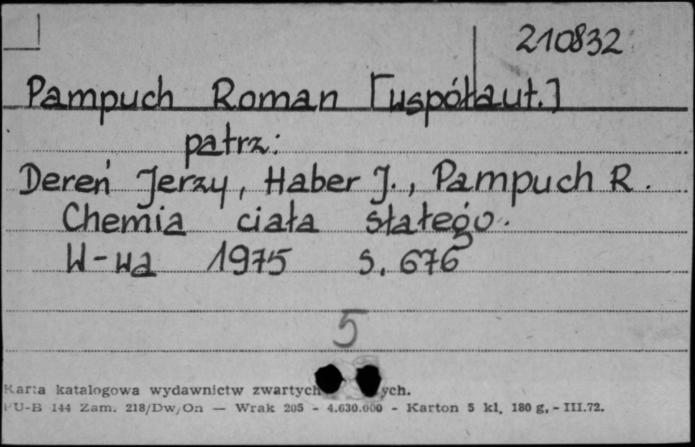 210832
Pampuch Roman [współaut.]
patrz:
Dereń Jerzy, Haber J., Pampuch R.
Chemia ciała stałego.
W-wa 1975 s. 676
5
Karta katalogowa wydawnictw zwartych
PU-B 144 Zam. 218/Dw/On — Wrak 205 - 4.630.000 - Karton 5 kl. 180 g. - III.72.